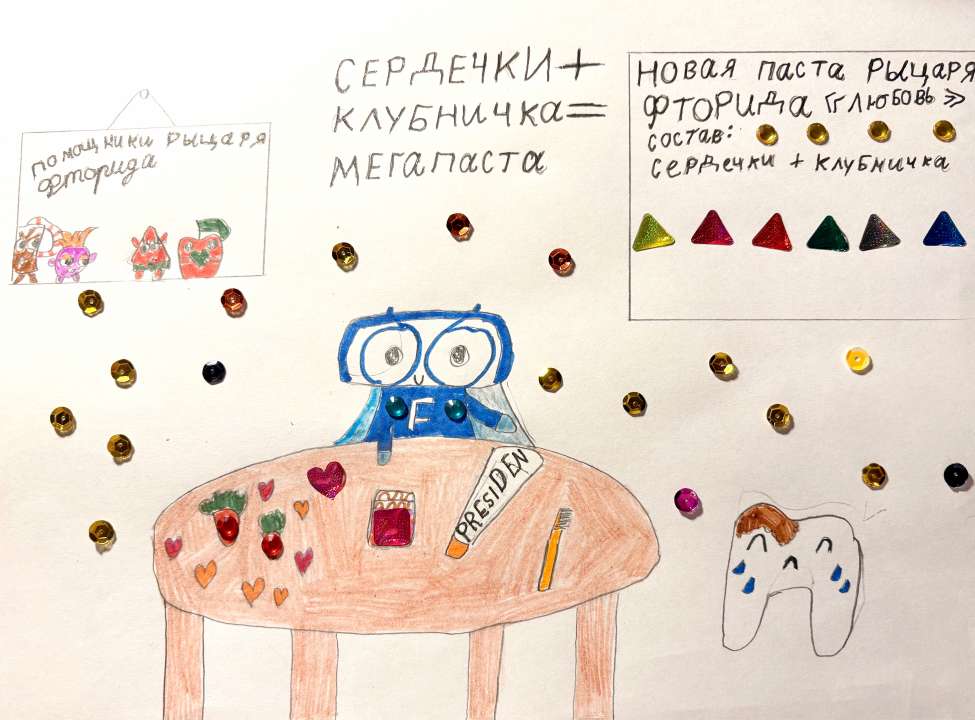 ПОМОЩНИКИ РЫЦАРЯ
ФТОРИДА
СЕРДЕЧКИ +
КЛУБНИЧКА =
МЕГАПАСТА
НОВАЯ ПАСТА РЫЦАРЯ
ФТОРИДА «ЛЮБОВЬ»
СОСТАВ:
СЕРДЕЧКИ + КЛУБНИЧКА
F
PRESIDEN